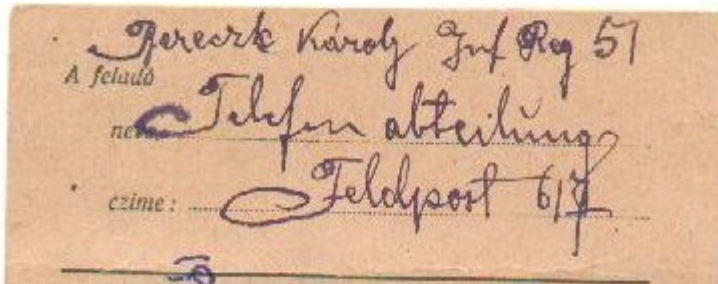 Pereczk Károly Inf Reg 51
A feladó
neve: Telefon abteilung
czime: Feldpost